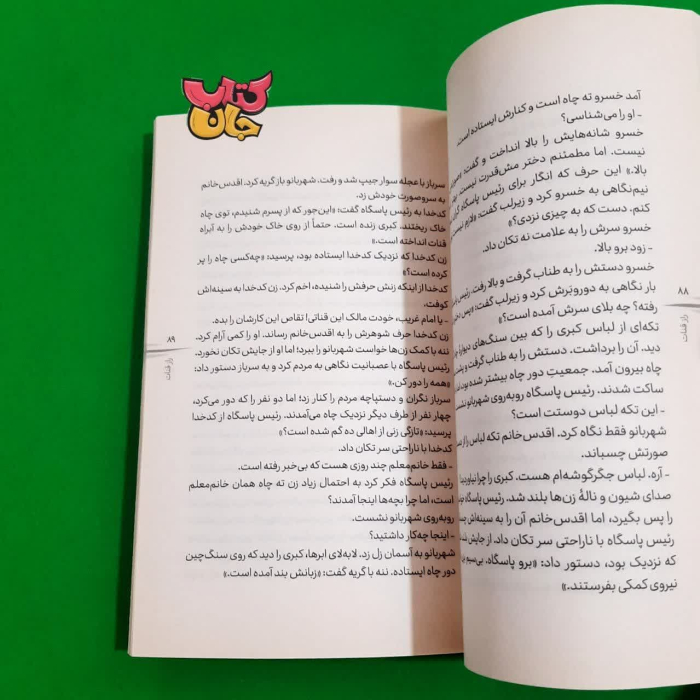 کتاب
جان
آمد خسرو ته چاه است و کنارش ایستاده است.
- او را می‌شناسی؟
خسرو شانه‌هایش را بالا انداخت و گفت:
نیست. اما مطمئنم دختر مش‌قدرت نیست.
بالا.» این حرف که انگار برای رئیس پاسگاه
نیم‌نگاهی به خسرو کرد و زیرلب گفت: «لازم نیست
کنم. دست که به چیزی نزدی؟»
خسرو سرش را به علامت نه تکان داد.
- زود برو بالا.
خسرو دستش را به طناب گرفت و بالا رفت. رئیس
بار نگاهی به دوروبرش کرد و زیرلب گفت: «پس
رفته؟ چه بلای سرش آمده است؟»
تکه‌ای از لباس کبری را که بین سنگ‌های دیوارۀ
دید. آن را برداشت. دستش را به طناب گرفت و
چاه بیرون آمد. جمعیتِ دور چاه بیشتر شده بود.
ساکت شدند. رئیس پاسگاه روبه‌روی شهربانو نشست
- این تکه لباس دوستت است؟
شهربانو فقط نگاه کرد. اقدس‌خانم تکه لباس را از
صورتش چسباند.
- آره. لباس جگرگوشه‌ام هست. کبری را چرا
صدای شیون و نالۀ زن‌ها بلند شد. رئیس پاسگاه
را پس بگیرد، اما اقدس‌خانم آن را به سینه‌اش
رئیس پاسگاه با ناراحتی سر تکان داد. از جایش
که نزدیک بود، دستور داد: «برو پاسگاه. بی‌سیم
نیروی کمکی بفرستند.»
۸۸
راز قنات
سرباز با عجله سوار جیپ شد و رفت. شهربانو باز گریه کرد. اقدس‌خانم
به سروصورت خودش زد.
کدخدا به رئیس پاسگاه گفت: «این‌جور که از پسرم شنیدم، توی چاه
خاک ریختند. کبری زنده است. حتماً از روی خاک خودش را به آبراه
قنات انداخته است.»
زن کدخدا که نزدیک کدخدا ایستاده بود، پرسید: «چه‌کسی چاه را پر
کرده است؟»
کدخدا از اینکه زنش حرفش را شنیده، اخم کرد. زن کدخدا به سینه‌اش
کوفت.
- یا امام غریب، خودت مالک این قناتی! تقاص این کارشان را بده.
زن کدخدا حرف شوهرش را به اقدس‌خانم رساند. او را کمی آرام کرد.
ننه با کمک زن‌ها خواست شهربانو را ببرد؛ اما او از جایش تکان نخورد.
رئیس پاسگاه با عصبانیت نگاهی به مردم کرد و به سرباز دستور داد:
«همه را دور کن.»
سرباز نگران و دستپاچه مردم را کنار زد؛ اما دو نفر را که دور می‌کرد،
چهار نفر از طرف دیگر نزدیک چاه می‌آمدند. رئیس پاسگاه از کدخدا
پرسید: «تازگی زنی از اهالی ده گم شده است؟»
کدخدا با ناراحتی سر تکان داد.
- فقط خانم‌معلم چند روزی هست که بی‌خبر رفته است.
رئیس پاسگاه فکر کرد به احتمال زیاد زن ته چاه همان خانم‌معلم
است، اما چرا بچه‌ها اینجا آمدند؟
روبه‌روی شهربانو نشست.
- اینجا چه‌کار داشتید؟
شهربانو به آسمان زل زد. لابه‌لای ابرها، کبری را دید که روی سنگ‌چین
دور چاه ایستاده. ننه با گریه گفت: «زبانش بند آمده است.»
۸۹
راز قنات